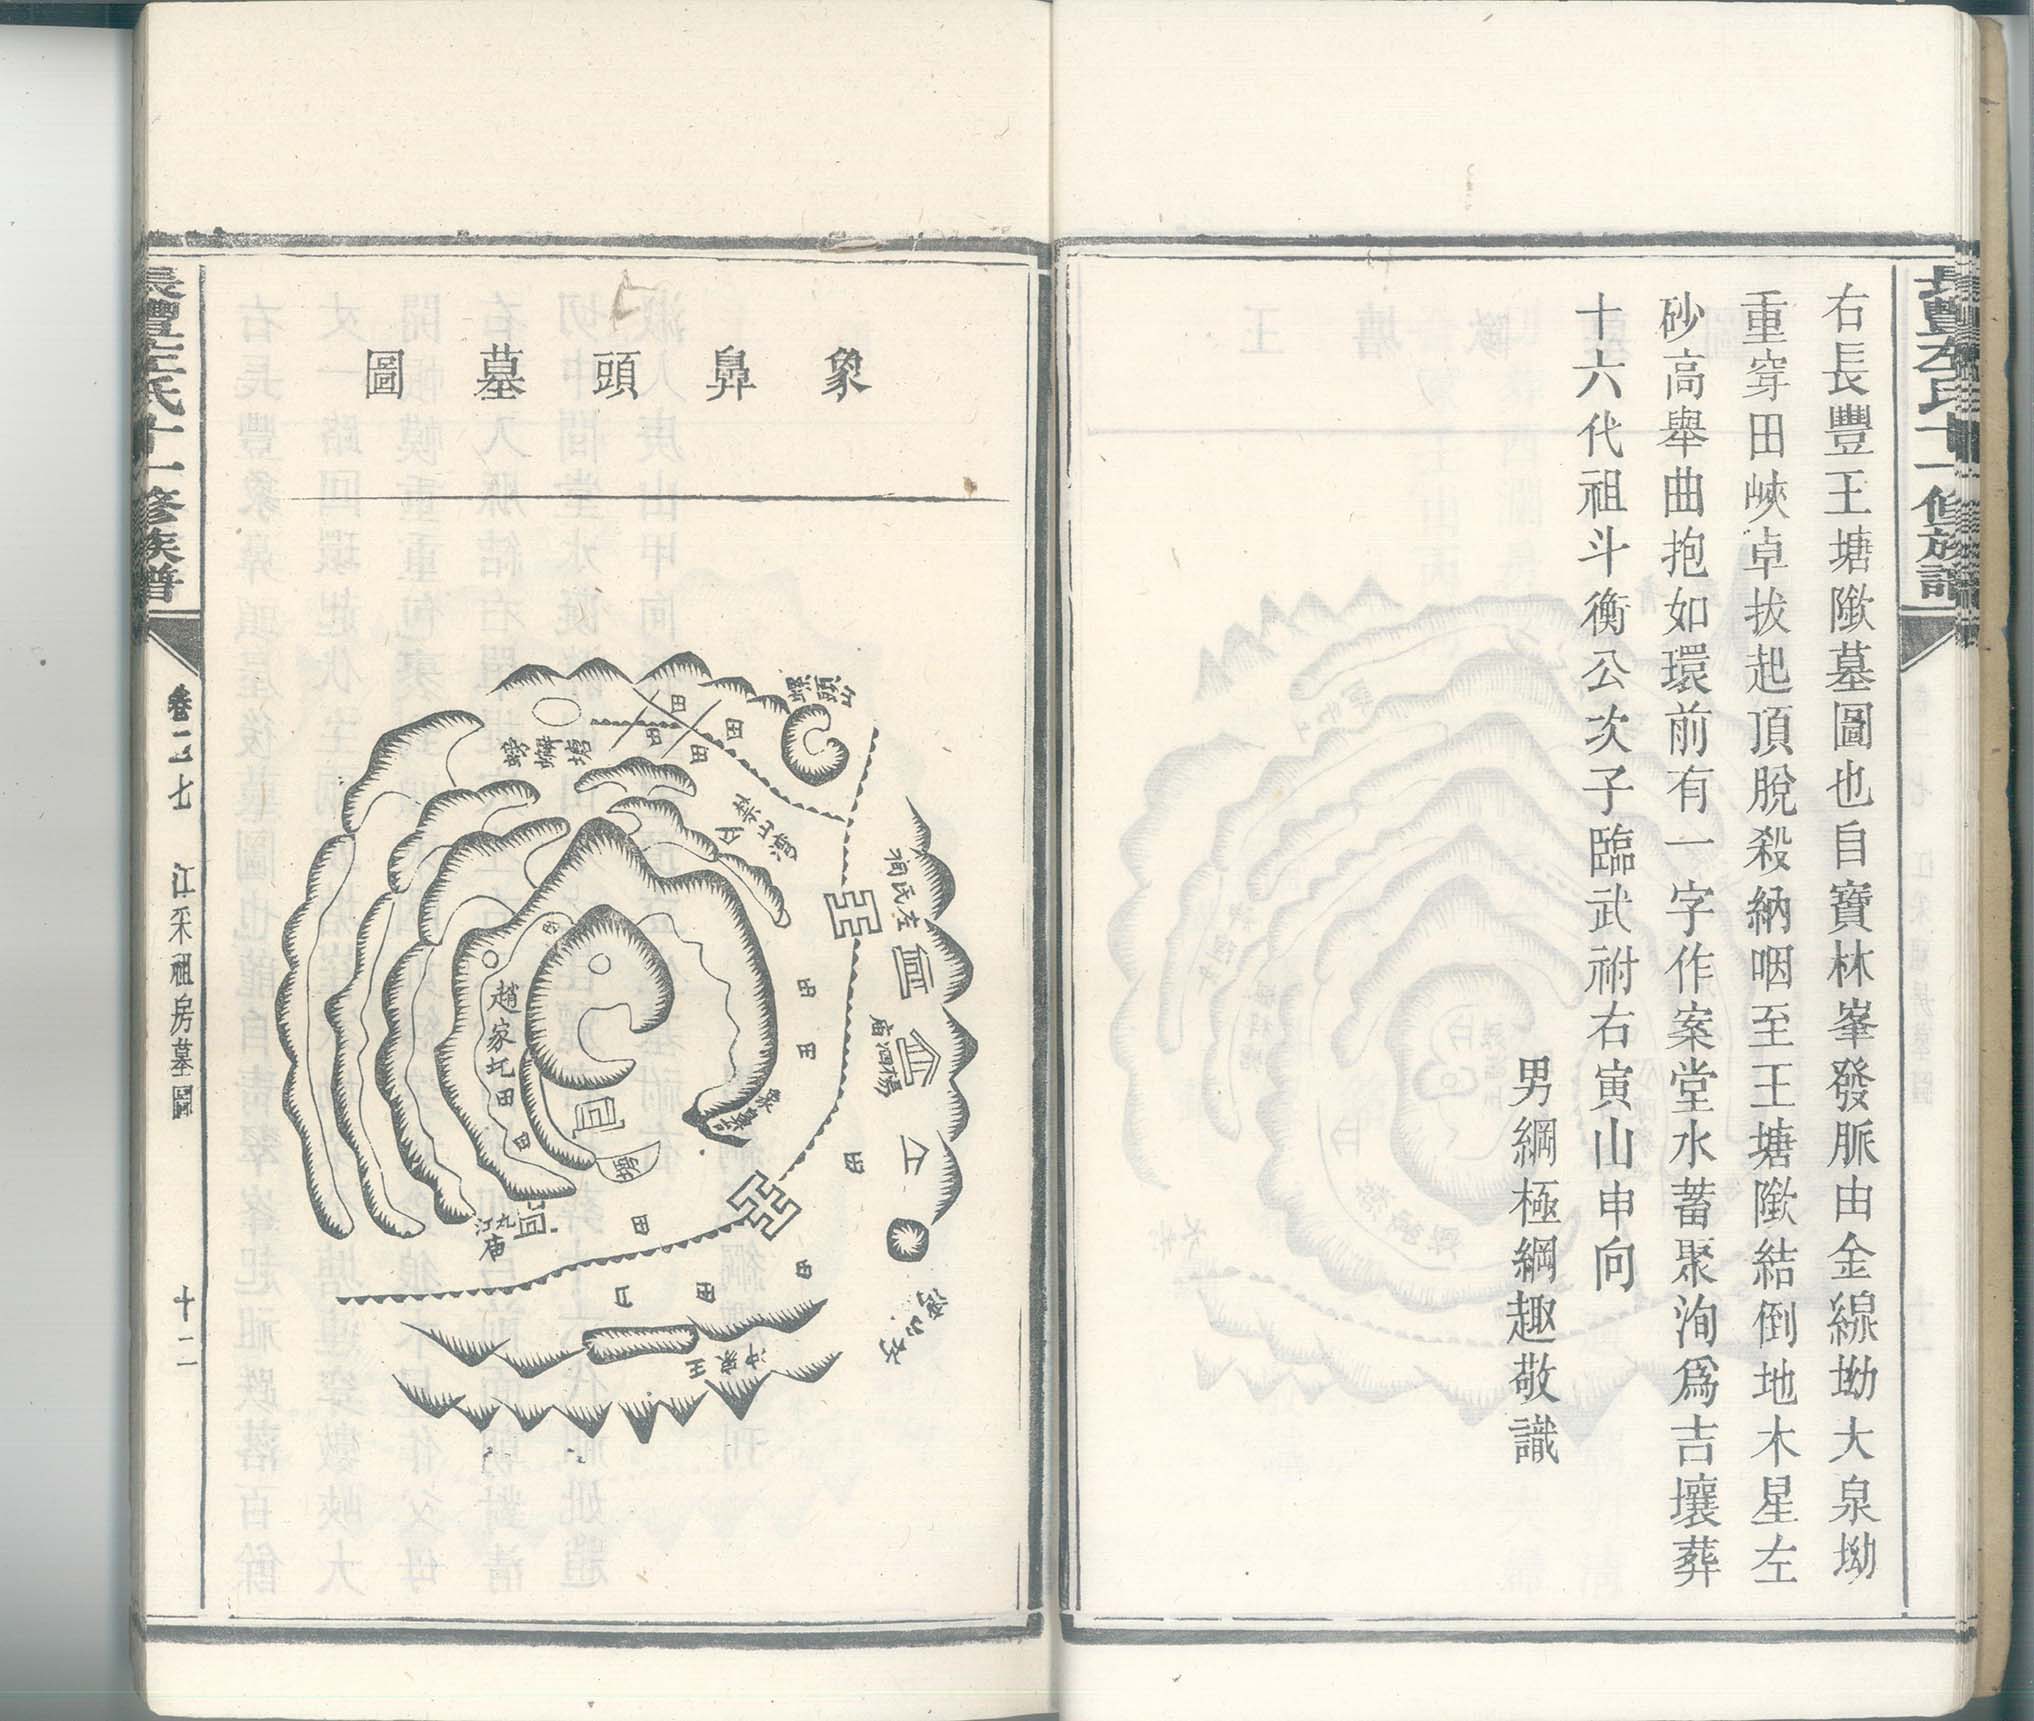 右長豐王塘隞墓圖也自寶林峯發脈由金線坳大泉坳
重穿田峽卓拔起頂脫殺納咽至王塘隞結倒地木星左
砂高舉曲抱如環前有一字作案堂水蓄聚洵爲吉壤葬
十六代祖斗衡公次子臨武祔右寅山申向
男綱極綱趣敬識
長豐左氏十一修族譜
象鼻頭墓圖
螺頭山
螃蠏塘
田
田
田
田
左氏祠
楊泗廟
田
田
趙家圫田
田
田
九江廟
田
田
田
田
王家冲
長豐左氏十一修族譜
卷二七
江采祖房墓圖
十二